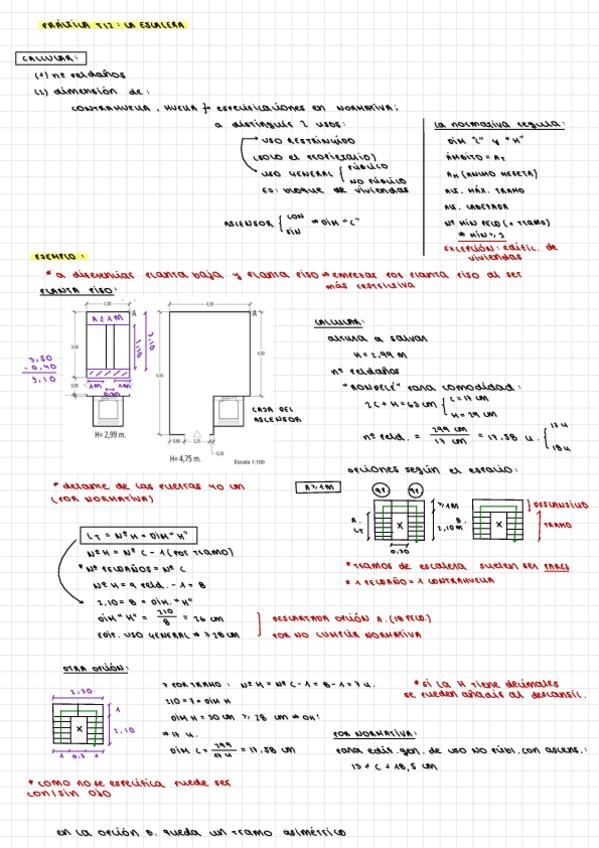 PRÁCTICA T12: LA ESCALERA
CALCULAR:
(1) nº peldaños
(2) dimensión de:
CONTRAHUELLA, HUELLA } especificaciones en NORMATIVA:
a distinguir 2 usos:
USO RESTRINGIDO
(SOLO el propietario)
USO GENERAL { PÚBLICO
NO PÚBLICO
EJ: bloque de viviendas
ASCENSOR { CON
SIN
⇒ DIM "C"
La normativa regula:
DIM "C" y "H"
ÁMBITO = AT
AM (ANCHO MESETA)
ALT. MÁX. TRAMO
ALT. CABEZADA
Nº MIN PELD (x TRAMO)
* MÍN ≥ 3
EXCEPCIÓN: edific. de viviendas
EJEMPLO:
* a diferenciar planta baja y planta piso ⇒ empezar por planta piso al ser
más restrictiva
PLANTA PISO:
3,50
- 0,40
3,10
A ≥ 1 M
2,10
1M
1M
0,30
H= 2,99 m.
H= 4,75 m.
Escala 1:100
CAJA DEL
ASCENSOR
CALCULAR:
altura a salvar
H = 2,99 M
nº peldaños
"RONDELÉ" para comodidad:
2C + H = 63 cm { C = 17 cm
H = 29 cm
nº peld. = 299 cm / 17 cm = 17,58 u. { 17 u
18 u
opciones según el espacio:
* delante de las puertas 40 cm
(POR NORMATIVA)
A ≥ 1M
9P
9P
≥ 1M
A.
LT
B.
2,10 M
X
0,30
X
DESCANSILLO
TRAMO
* TRAMOS de escalera suelen ser PARES
* 1 PELDAÑO = 1 CONTRAHUELLA
LT = Nº H × DIM "H"
Nº H = Nº C - 1 (POR TRAMO)
* Nº PELDAÑOS = Nº C
Nº H = 9 peld. - 1 = 8
2,10 = 8 × DIM. "H"
DIM "H" = 210 / 8 = 26 cm
EDIF. USO GENERAL ⇒ ≥ 28 cm
DESCARTADA OPCIÓN A. (18 PELD.)
POR NO CUMPLIR NORMATIVA
OTRA OPCIÓN:
2,30
1
2,10
X
1 0,3 1
? POR TRAMO: Nº H = Nº C - 1 = 8 - 1 = 7 u.
210 = 7 × DIM H
DIM H = 30 cm ≥ 28 cm ⇒ OK!
⇒ 17 u.
DIM C = 299 / 17 u = 17,58 cm
* si la H tiene decimales
se pueden añadir al descansil.
POR NORMATIVA:
Para edif. gen. de uso NO PÚBL. con ascens.:
13 < C < 18,5 cm
* como no se especifica puede ser
con/sin ojo
en la opción B. queda un tramo asimétrico